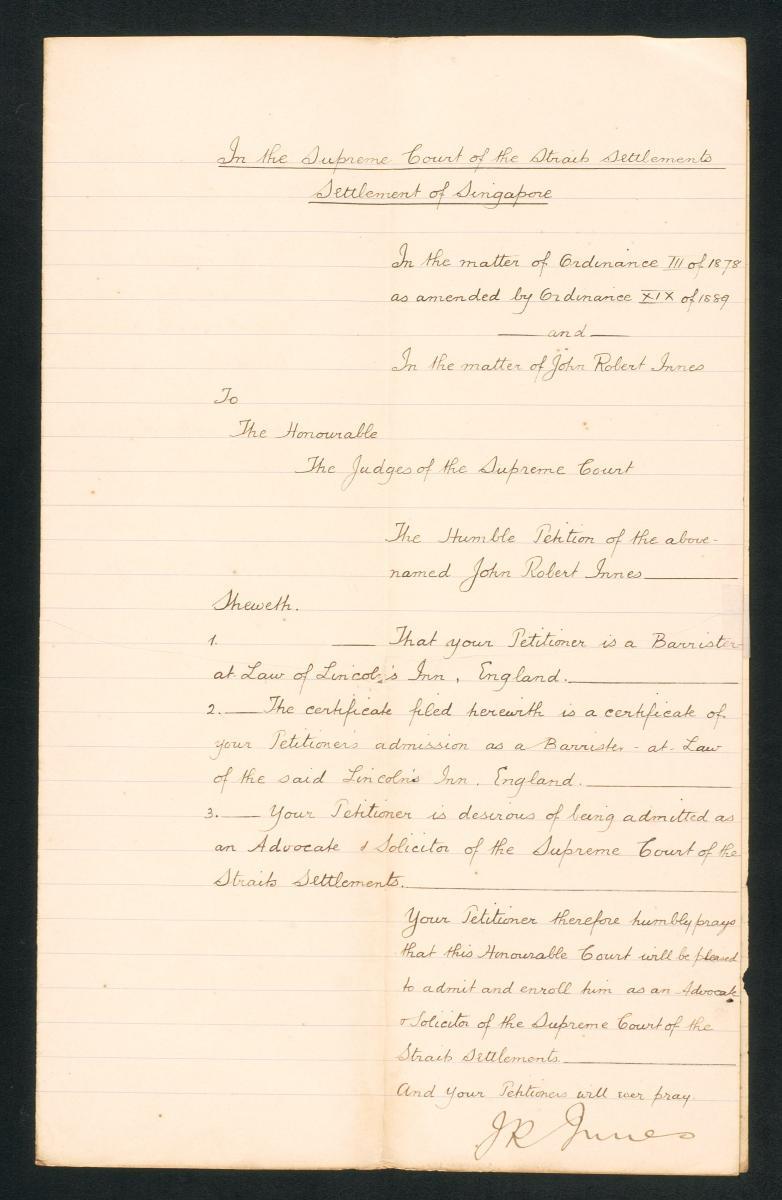 In the Supreme Court of the Straits Settlements
Settlement of Singapore
In the matter of Ordinance III of 1878
as amended by Ordinance XIX of 1889
— and —
In the matter of John Robert Innes
To
The Honourable
The Judges of the Supreme Court
The Humble Petition of the above-
named John Robert Innes
Sheweth.
1. — That your Petitioner is a Barrister-
at Law of Lincoln's Inn, England.
2. — The certificate filed herewith is a certificate of
your Petitioner's admission as a Barrister-at-Law
of the said Lincoln's Inn. England.
3. — Your Petitioner is desirous of being admitted as
an Advocate & Solicitor of the Supreme Court of the
Straits Settlements.
Your Petitioner therefore humbly prays
that this Honourable Court will be pleased
to admit and enroll him as an Advocate
& Solicitor of the Supreme Court of the
Straits Settlements
And your Petitioners will ever pray
JR Innes